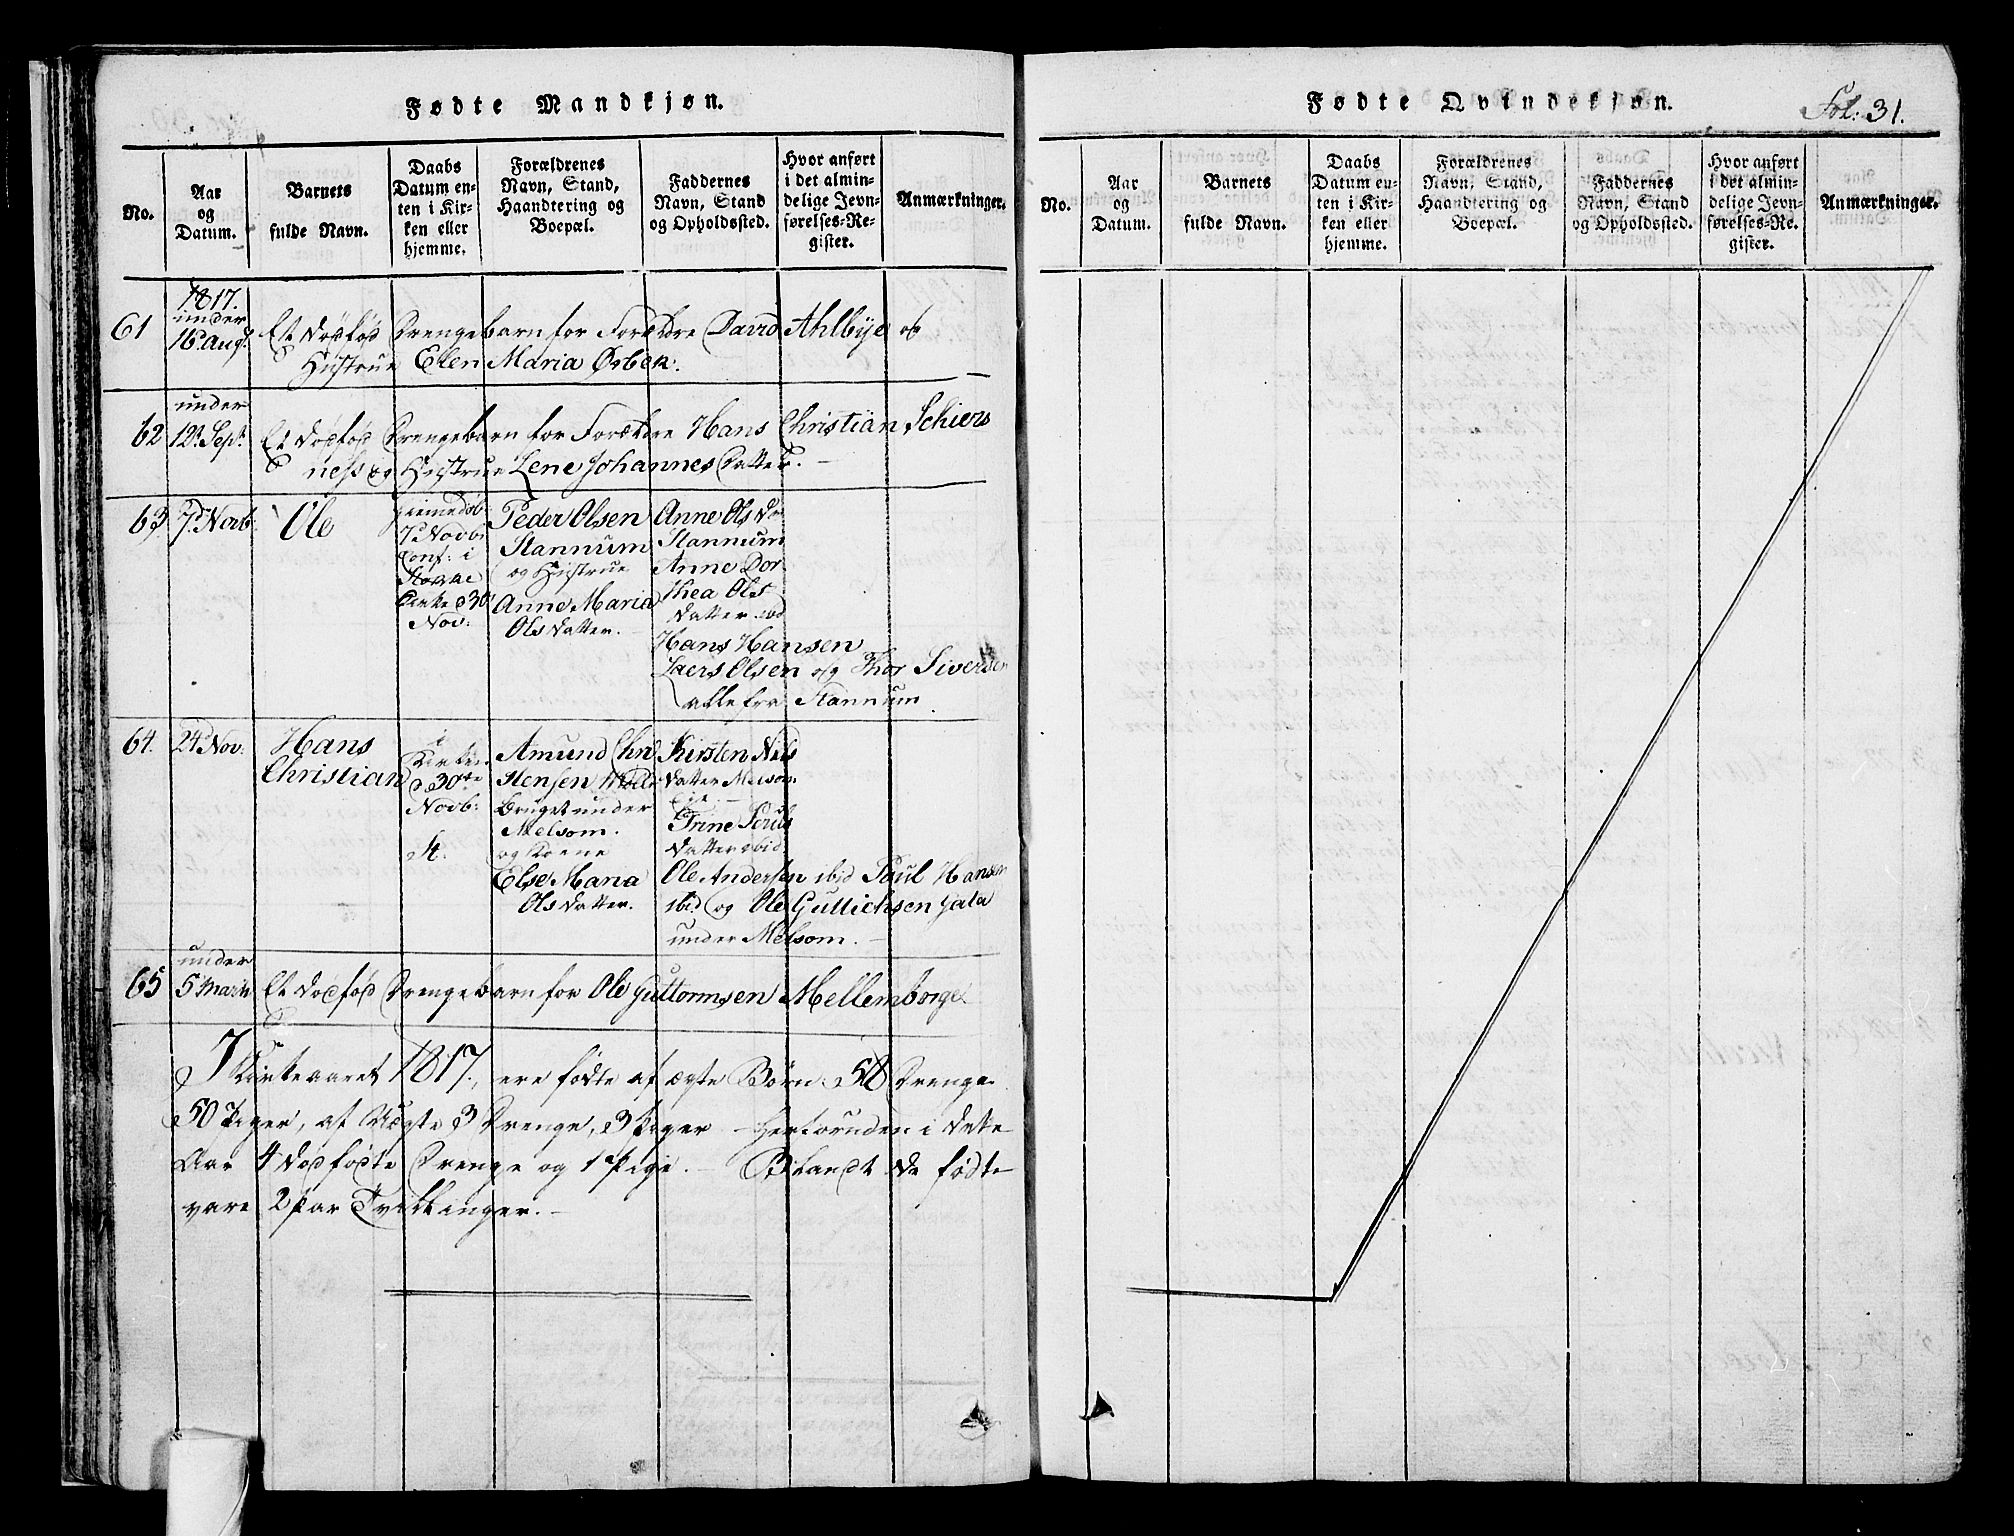 Fødte Mandkjøn.
No.
Aar
og
Datum.
Barnets
fulde Navn.
Daabs
Datum en-
ten i Kir-
ken eller
hjemme.
Forældrenes
Navn, Stand,
Haandtering og
Boepæl.
Faddernes
Navn, Stand
og Opholdssted.
Hvor anført
i det almin-
delige Jevn-
førelses-Re-
gister.
Anmærkninger.
1817.
under
61 16 Aug. Et dødfød Drengebarn for Forældre David Ahlbye og
Hustrue Elen Maria Ørbek.
under
62 12t Sept. Et dødfød Drengebarn for Forældre Hans Christian Schiers
ness og Hustrue Lene Johannes Datter. —
63 7d Novb:
Ole
hiemmedøb
7d Novb
Conf: i
Stokke
Kirke d 30
Nov:
Peder Olsen
Stannum
og Hustrue
Anne Maria
Olsdatter.
Anne Ols Da
Stannum
Anne Dor
thea Ols
datter ibd
Hans Hansen
Laers Olsen og Thor Siversen
alle fra Stannum
64. 24 Nov:
Hans
Christian
i
Kirken
d 30te
Novb:
St.
Amund Chri
stensen Mølle
bruget under
Melsom.
og Kone
Else Maria
Olsdatter.
Kirsten Niels
datter Melsom
Eie
Trine Pouls
datter ibid
Ole Andersen ibid Paul Hansen
ibid og Ole Gullichsen Hata
under Melsom. —
under
65 5 Marti Et dødfød Drengebarn for Ole Guttormsen Mellemborge
I Kirkeaaret 1817., ere fødte af ægte Børn: 58 Drenge
50 Piger, af Uægte 3 Drenge, 3 Piger — herforuden i dette
Aar 4 dødfødte Drenge og 1 Pige. — Blandt de fødte
vare 2 Par Tvillinger. —
Fødte Qvindekjøn.
Fol: 31.
No.
Aar
og
Datum.
Barnets
fulde Navn.
Daabs
Datum en-
ten i Kir-
ken eller
hjemme.
Forældrenes
Navn, Stand,
Haandtering og
Boepæl.
Faddernes
Navn, Stand
og Opholdssted.
Hvor anført
i det almin-
delige Jevn-
førelses-Re-
gister.
Anmærkninger.